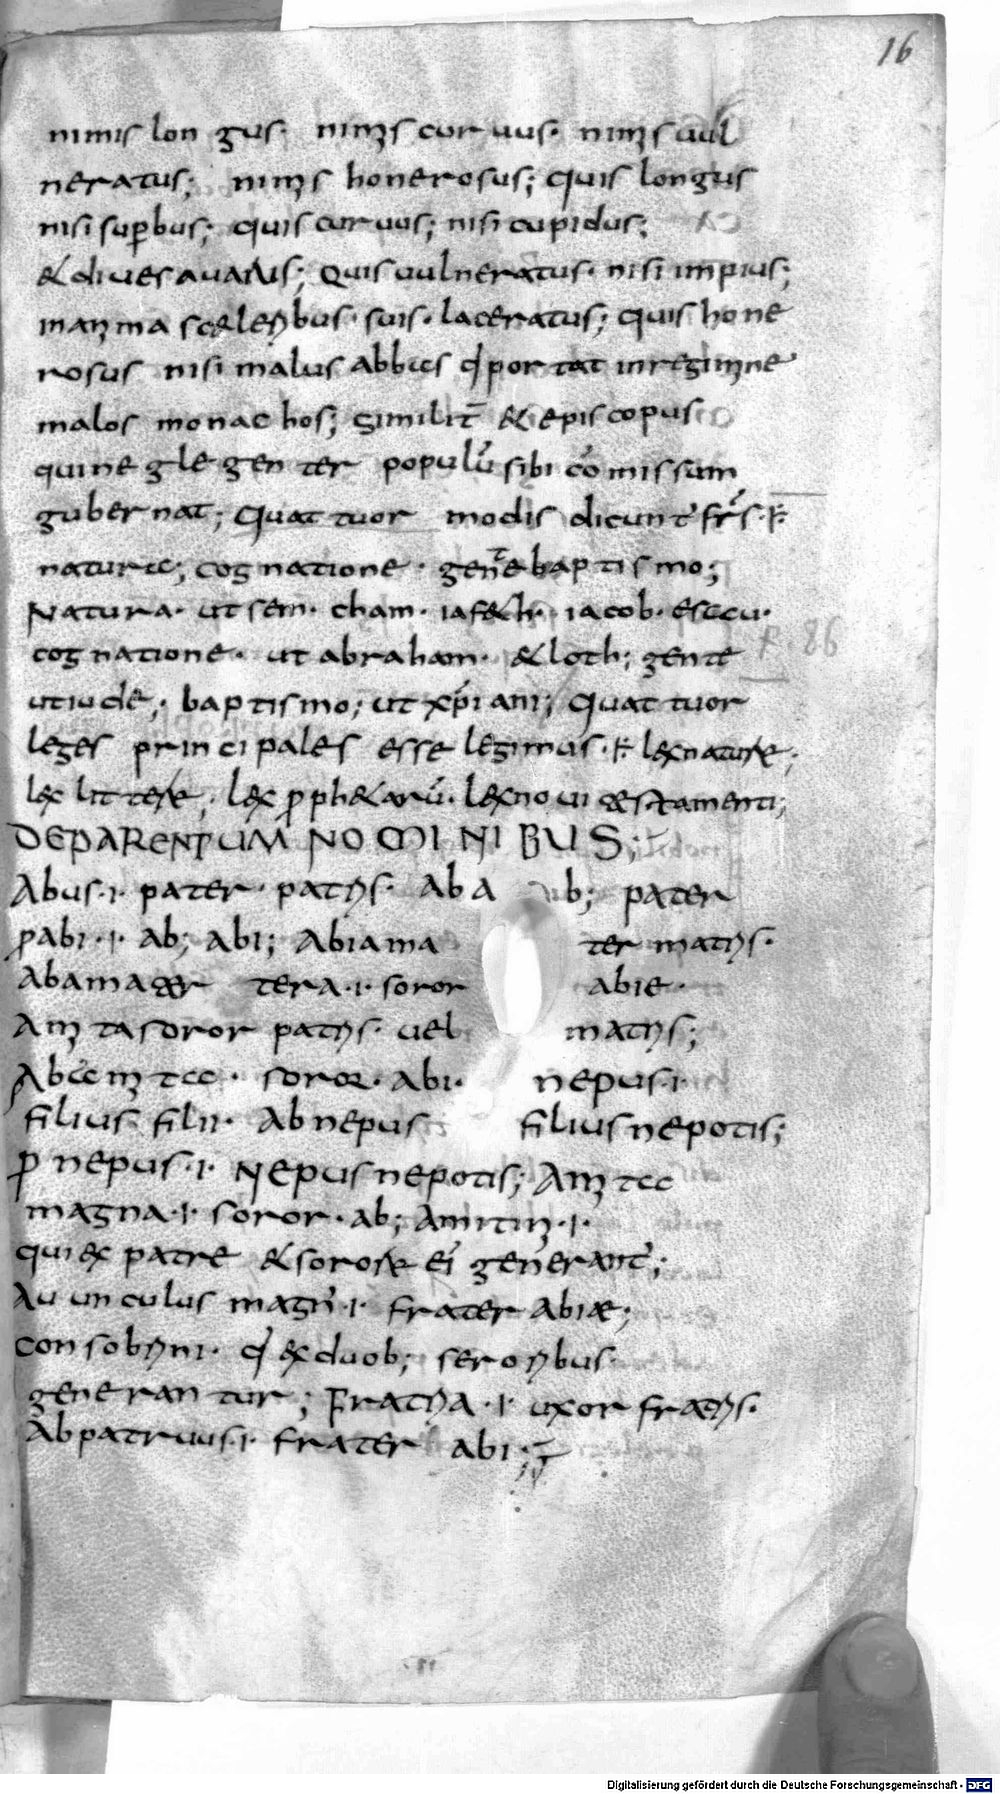 16
nimis lon gus· nimis cur uus· nimis uul
neratus; nimis honerosus; quis longus
nisi sup̄bus; quis curuus; nisi cupidus;
&diues auarus; Quis uulneratus· nisi impius;
maxima sceleribus· suis· laceratus; quis hone
rosus nisi malus abbas qͥ portat in regimine
malos monachos; Similit̄ & episcopus
qui neglegenter populū sibi cōmissum
gubernat; Quattuor modis dicunt᷑ fr̄s·
nature; cognatione· gente baptismo;
Natura· ut sem· cham· iafeth· iacob· esau·
cognatione· ut abraham· & loth; gente
ut iude; baptismo; ut xp̄iani; Quattuor
leges principales esse legimus· lex nature;
lex littere; lex p̄ph&arū· lex noui testamenti;
DEPARENTUM NOMINIBUS;
Abus·i· pater· patris· ab; pater
abi·i· ab; abi; Abiama ter matris·
abamater tera·i· soror abie·
Amita soror patris· uel matris;
Abamita· soror· abi· nepus·i·
filius filii· Abnepus filius nepotis;
p̄nepus·i· Nepus nepotis; Amita
magna·i· soror· ab; amitini·i·
qui ex patre & sorore ei᷑ generant᷑;
Auunculus magn᷑·i· frater abiæ;
Consobrini· qͥ ex duob; sororibus·
generantur; Fratria·i· uxor fratris·
Abpatruus·i· frater abi;
Digitalisierung gefördert durch die Deutsche Forschungsgemeinschaft · DFG